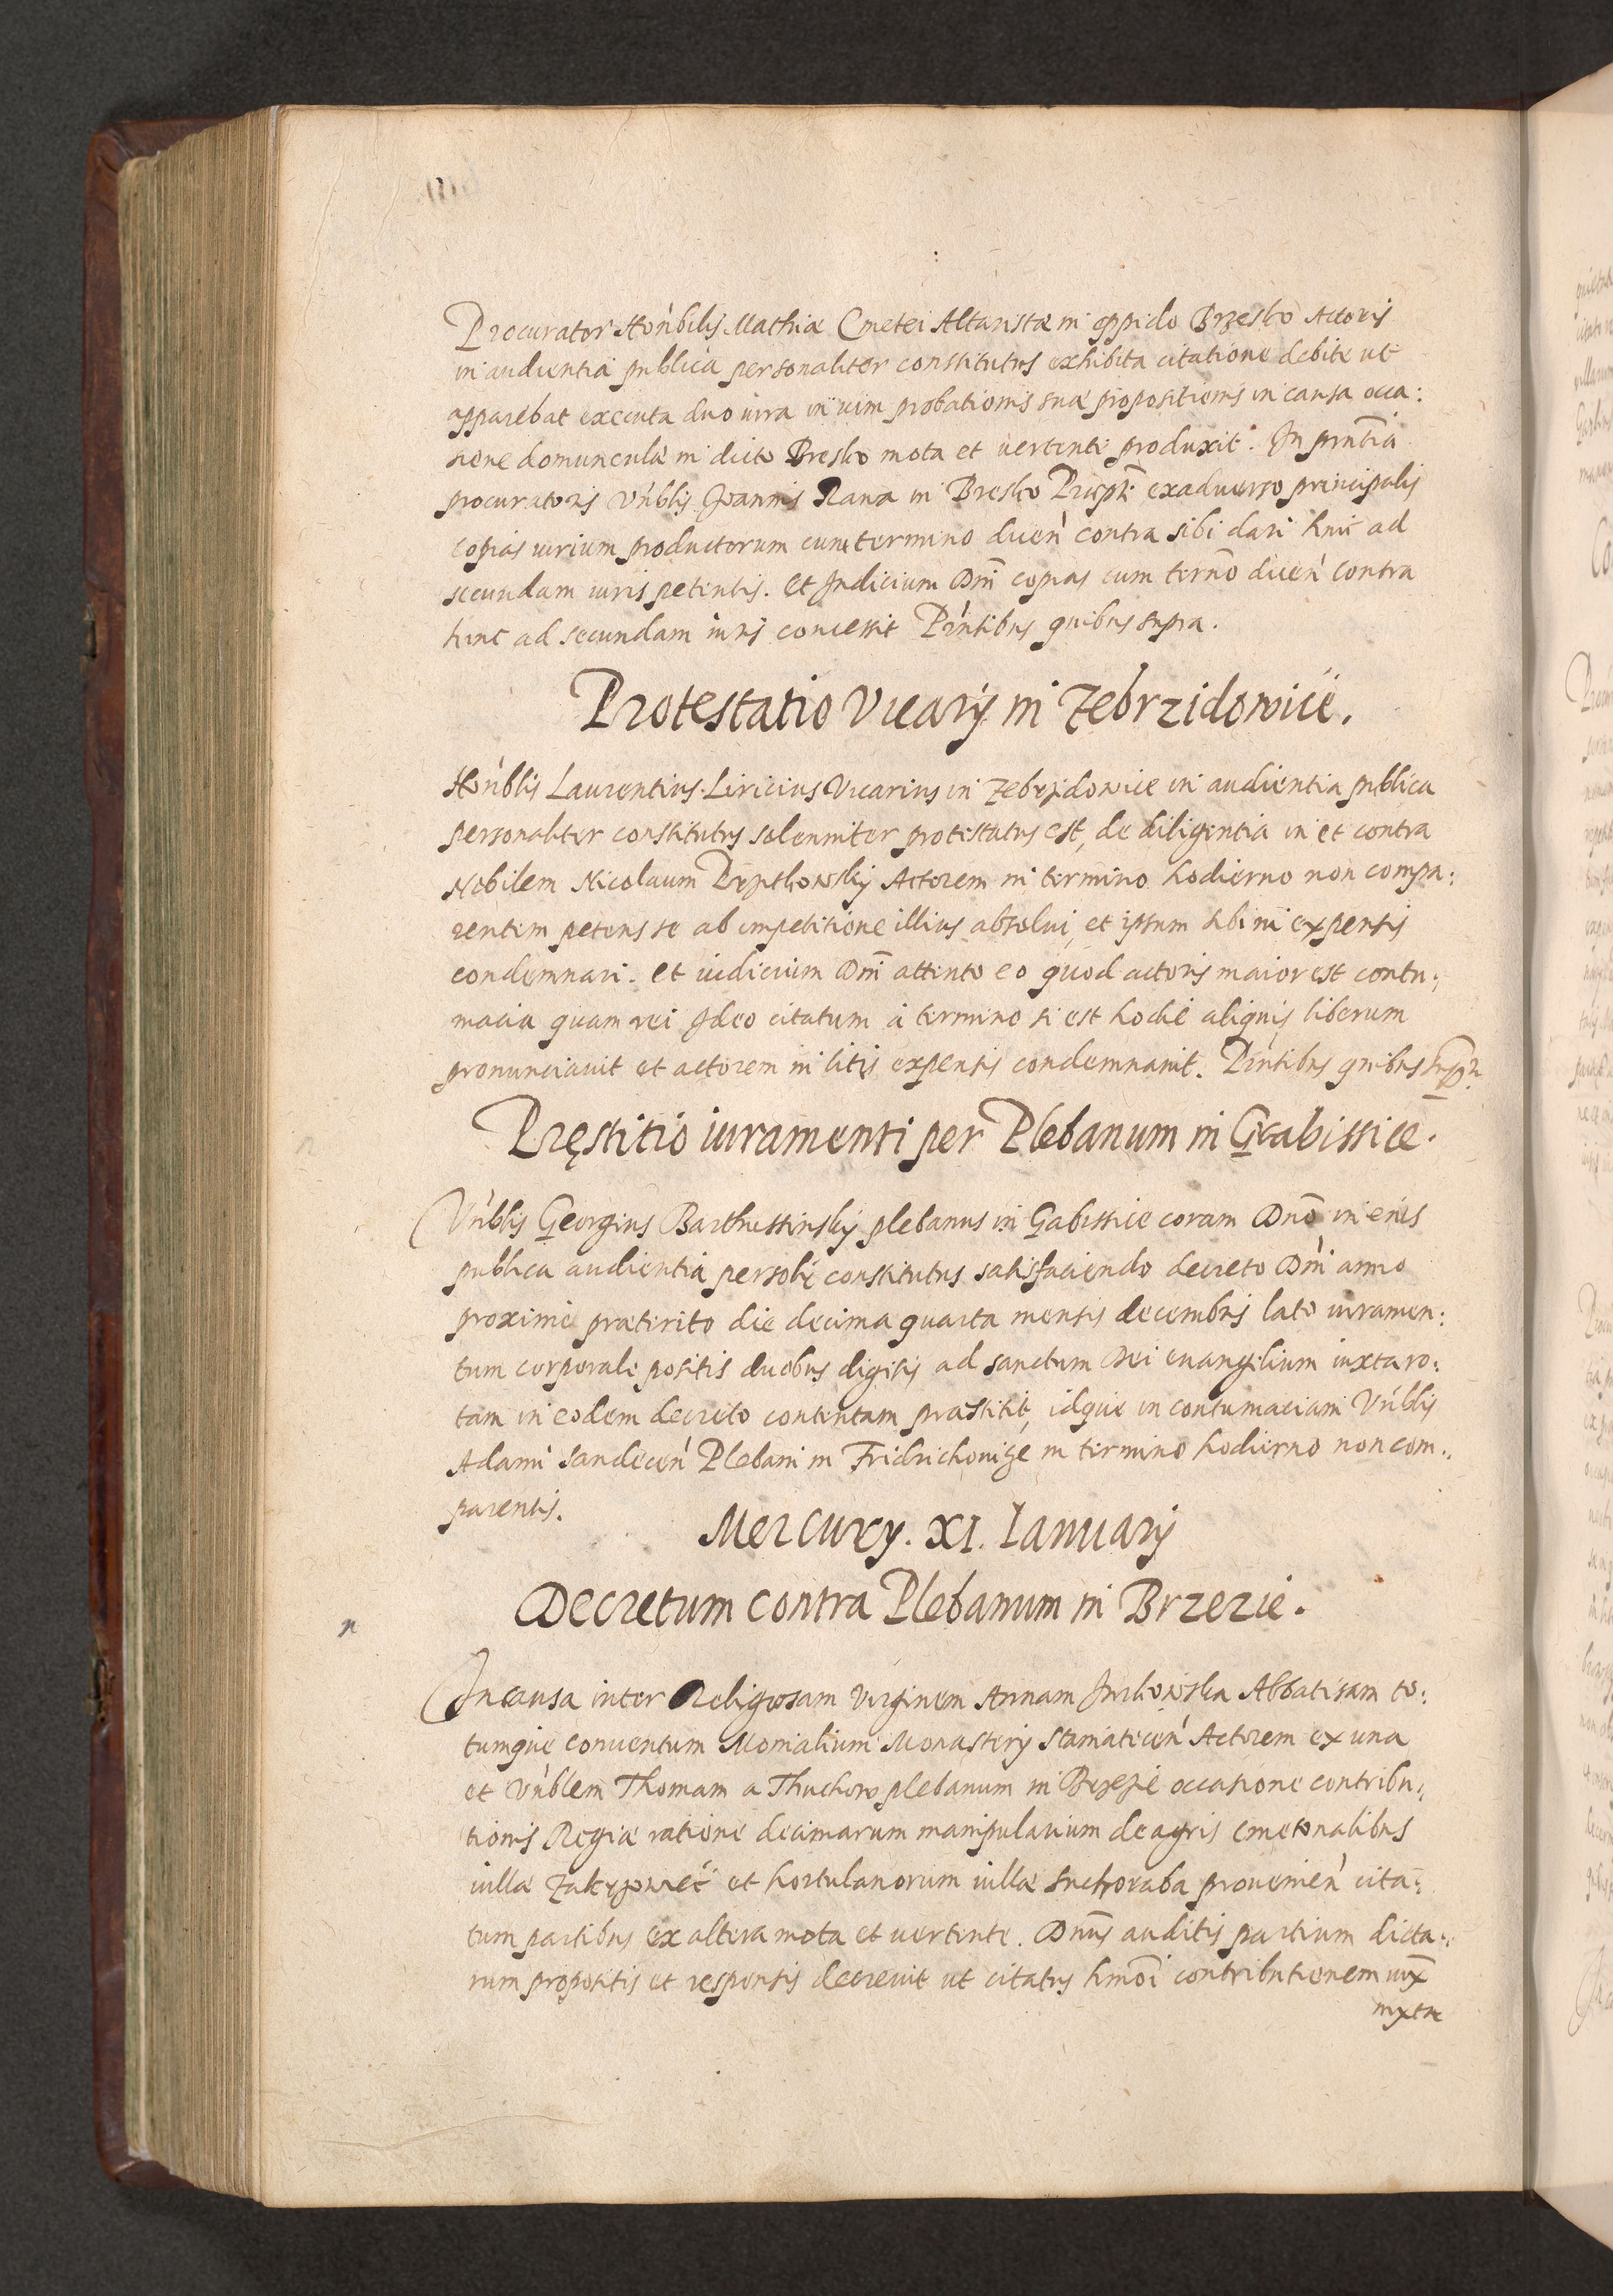 Procurator Honŕbilis Mathiæ Cmetei Altaristæ in oppido Brzesko Actoris
in audientia publica personaliter constitutus exhibita citatione debite ut
apparebat executa duo iura in uim probationis suæ propositionis in causa occa:
sione domunculæ in dicto Bresko mota et uertente produxit. In prn̄tia
procuratoris Vńblis Joannis Rana in Bresko Prępti exaduerso principalis
copias iurium productorum cum termino dicen̍ contra sibi dari hinc ad
secundam iuris petentis. Et Judicium Dnī copias cum terno̅ dicen̍ contra
hinc ad secundam iuris concessit Pŕntibus quibus supra.
Protestatio Vicarij in Zebrzidowice.
Honŕblis Laurentius Liricius Vicarius in Zebrzidowice in audientia publica
personaliter constitutus solenniter protestatus est, de diligentia in et contra
Nobilem Nicolaum Actorem in termino hodierno non compa:
rentem petens se ab impetitione illius absolui, et ipsum sibi in expensis
condemnari. Et iudicium Dnī attento eo quod actoris maior est contu:
macia quam rei Ideo citatum à termino si est hodie aliquis liberum
pronunciauit et actorem in litis expensis condemnauit. Pŕntibus quibus supr.
Pręstitio iuramenti per Plebanum in Grabissice.
Vńblis Georgius Barthussinskÿ plebanus in Gabissice coram Dno̅ in eius
publica audientia persolr̄ constitutus satisfaciendo decreto Dnī anno
proxime præterito die decima quarta mensis decembris lato iuramen:
tum corporale positis duobus digitis ad sanctum Dei euangelium iuxta ro:
tam in eodem decreto contentam præstitit, idque in contumaciam Vńblis
Adami Sandecen̍ Plebani in Fridrichowize in termino hodierno non com:
parentis.
Mercurÿ. XI. Ianuarÿ
Decretum contra Plebanum in Brzezie.
n
In causa inter Religiosam Virginem Annam Jurkowska Abbatisam to:
tumque conuentum Monialium Monasterÿ Staniatecen̍ Actorem ex una
et Vńblem Thomam a Thuchow plebanum in Brzezie occasione contribu:
tionis Regiæ ratione decimarum manipularium de agris cmetonalibus
uillæ et hortulanorum uillæ Suchoraba prouenien̍ cita:
tum partibus ex altera mota et uertente. Dnūs auditis partium dicta:
rum propositis et responsis decreuit ut citatus hmōi contributionem iux̅
iuxta